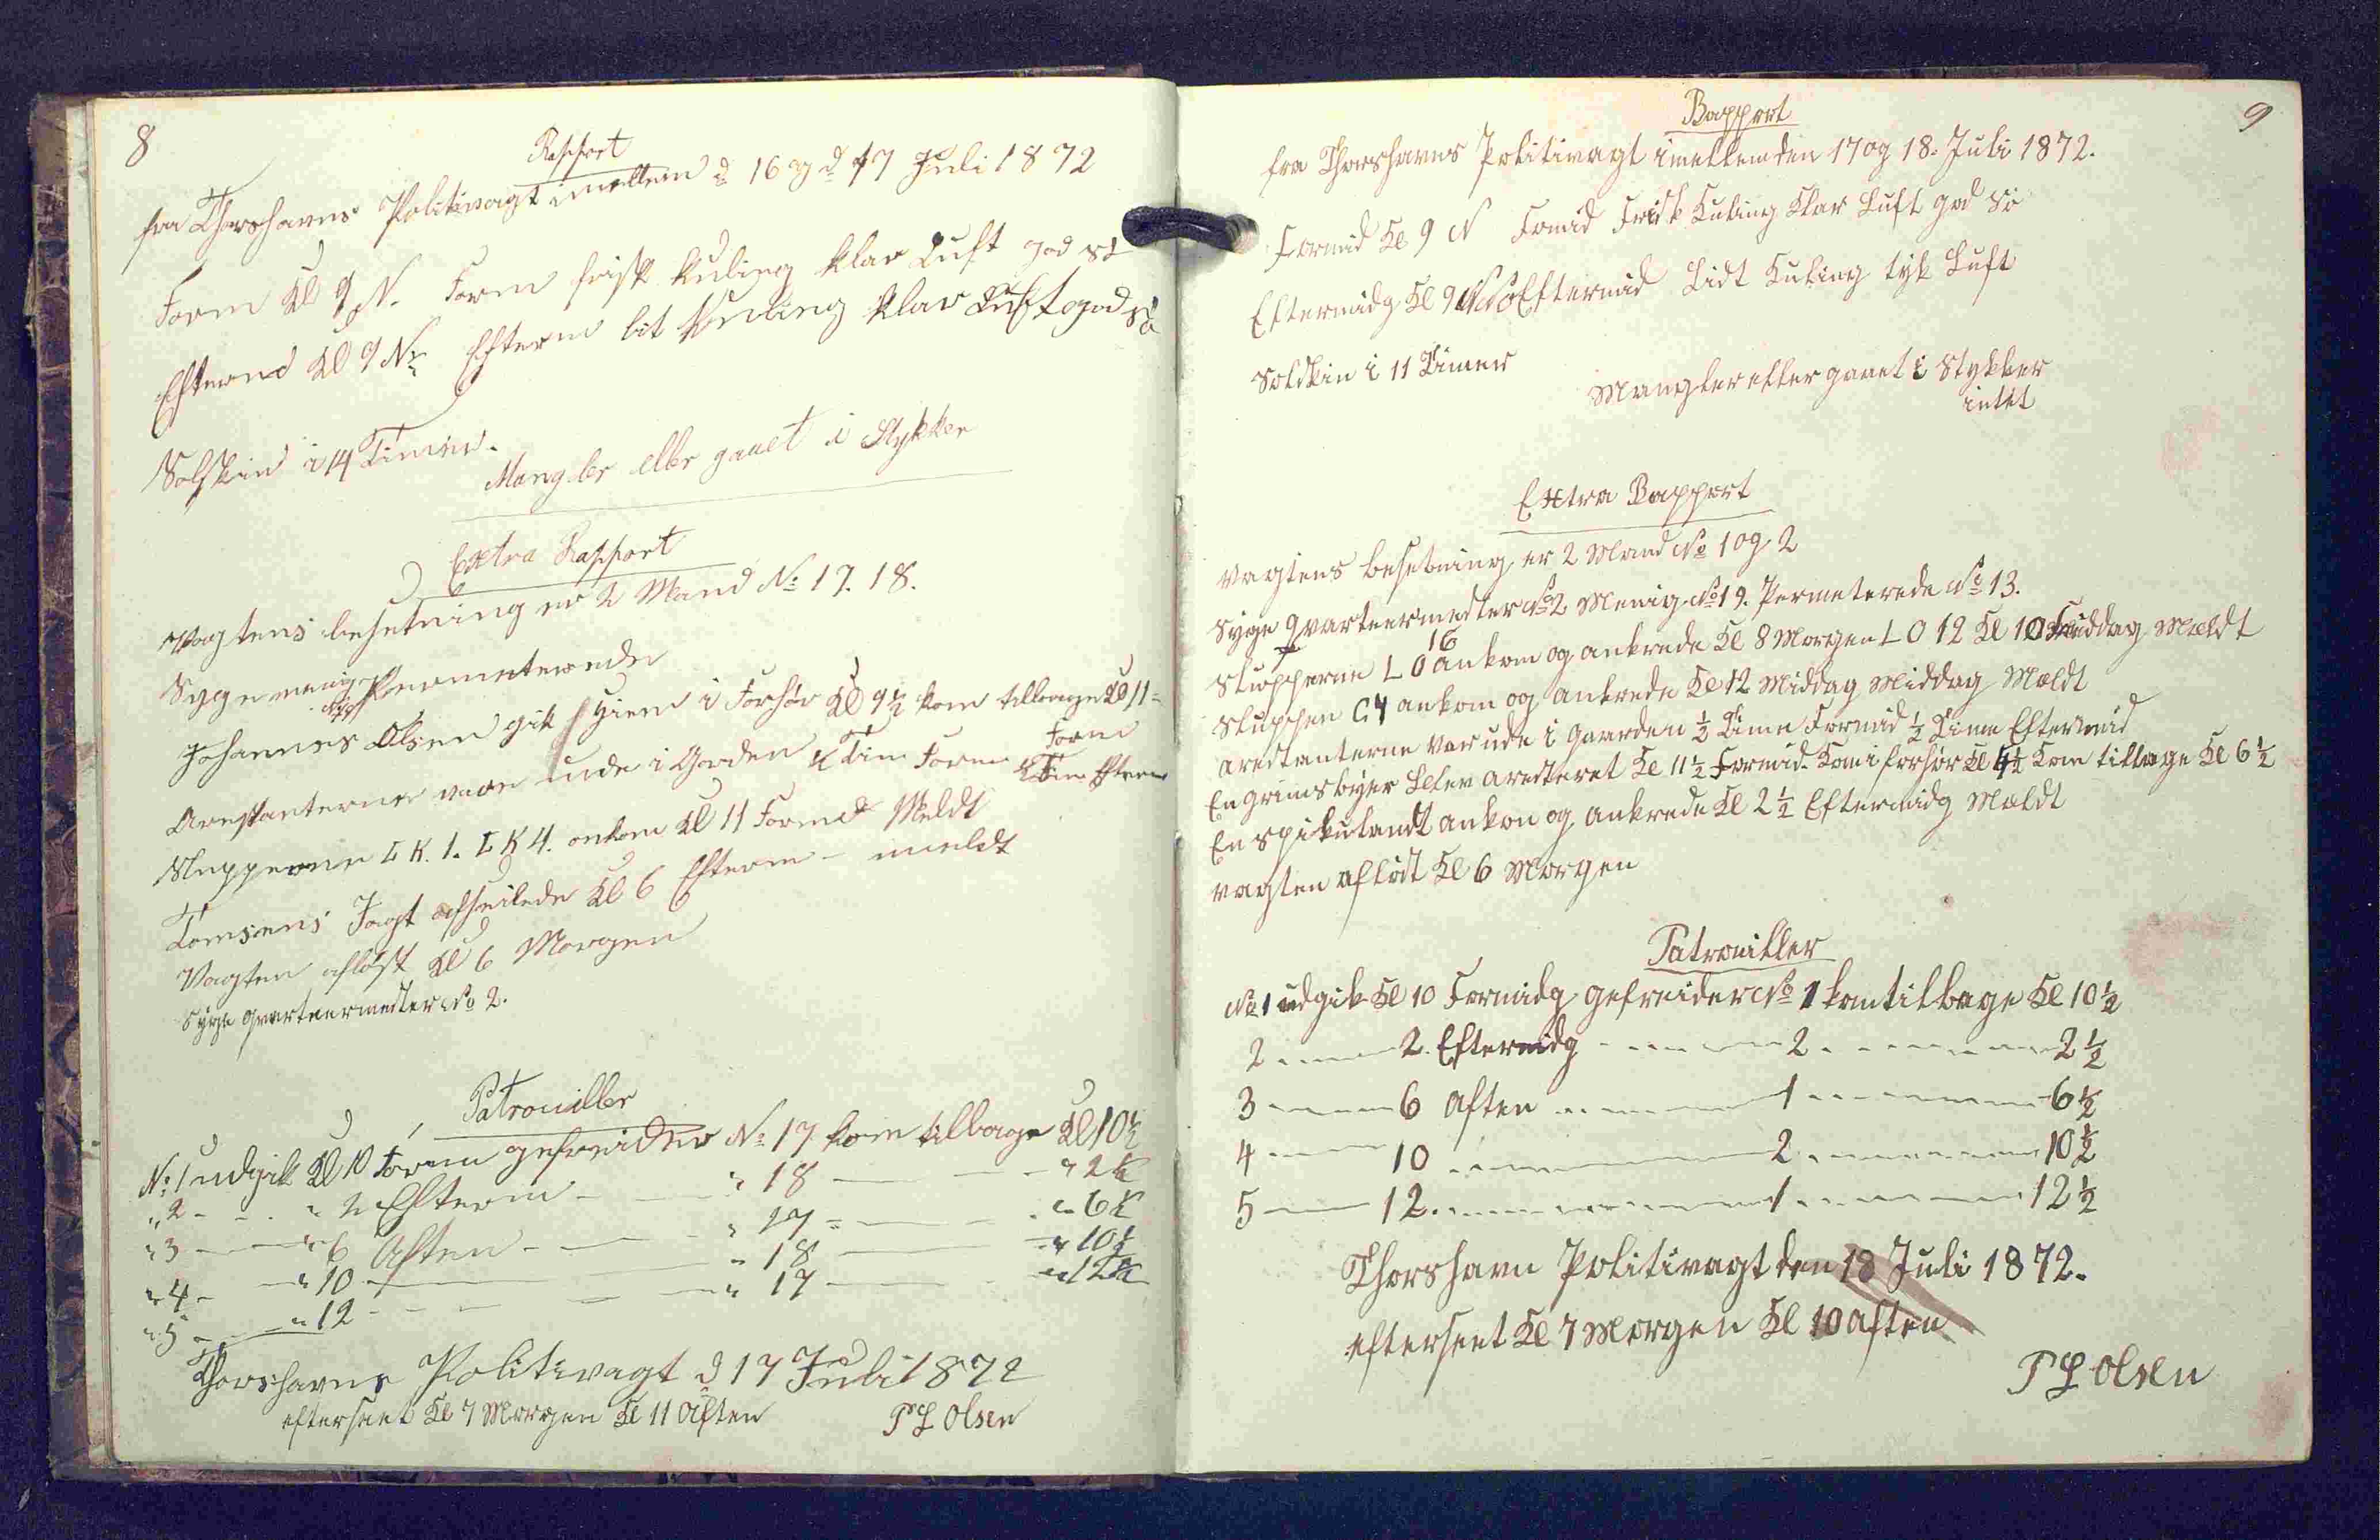 8
Rapport
fra Thorshavns Politivagt imellem d 16 og d 17 Juli 1872
Form Kl 9 N. Form frisk Kuling klar Luft god Sö
Eftermd Kl 9 N Efterm lit Kuling klar Luft god Sö
Solskin i 14 Timer.
Mangler eller gaaet i Stykker
Extra Rapport
Vagtens besetning er 2 Mand No 17. 18.
Syge menige No 19 Permeterede
Johannes Olsen gik hjem i Forhör Kl 9½ kom tilbage Kl 11 Form
Arestanterne vare ude i Gorden ½ Tim Form ½ Tim Efterm
Slupperne LK. 1. LK 4. ankom Kl 11 Formd Meldt
Tomsens Jagt afseilede Kl 6 Efterm - meldt
Vagten aflöst Kl 6 Morgen
Syge Qvarteermester No 2.
Patrouiller
No 1 udgik Kl 10 Form gefreider No 17 kom tilbage Kl 10½
" 2 - - " 2 Efterm - - " 18 - - " 2½
" 3 - - " 6 Aften - - " 17 - - " 6½
" 4 - - " 10 - - " 18 - - " 10½
" 5 - - " 12 - - " 17 - - " 12½
Thorshavns Politivagt d 17 Juli 1872
efterseet Kl 7 Morgen Kl 11 Aften
P L Olsen
9
Rapport
fra Thorshavns Politivagt imellem den 17 og 18. Juli 1872.
Formid Kl 9 N Fomid Frisk Kuling Klar Luft god Sö
Eftermidg Kl 9 NNO Eftermid Lidt Kuling tyk Luft
Solskin i 11 Timer
Mangler eller gaaet i Stykker
intet
Extra Rapport
Vagtens besetning er 2 Mand No 1 og 2
Syge Qvarteermester No 2 Menig No 19. Permeterede No 13.
Slupperne L O 16 ankom og ankrede Kl 8 Morgen L O 12 Kl 10 Middag Mældt
Sluppen C 4 ankom og ankrede Kl 12 Middag Middag Mældt
Arestanterne Var ude i Gaarden ½ Time Formid ½ Time Eftermid
En Grimsbyer blev Aresteret Kl 11½ Formid. Kom i forhör Kl 4½ Kom tilbage Kl 6½
En Spikulandt ankom og ankrede Kl 2½ Eftermidg Mældt
Vagten aflöst Kl 6 Morgen
Patrouiller
No 1 udgik Kl 10 Formidg Gefreider No 1 kom tilbage Kl 10½
2 - - 2 Eftermidg - - 2 - - 2½
3 - - 6 Aften - - 1 - - 6½
4 - - 10 - - 2 - - 10½
5 - - 12 - - 1 - - 12½
Thorshavn Politivagt den 18 Juli 1872.
efterseet Kl 7 Morgen Kl 10 Aften
P L Olsen